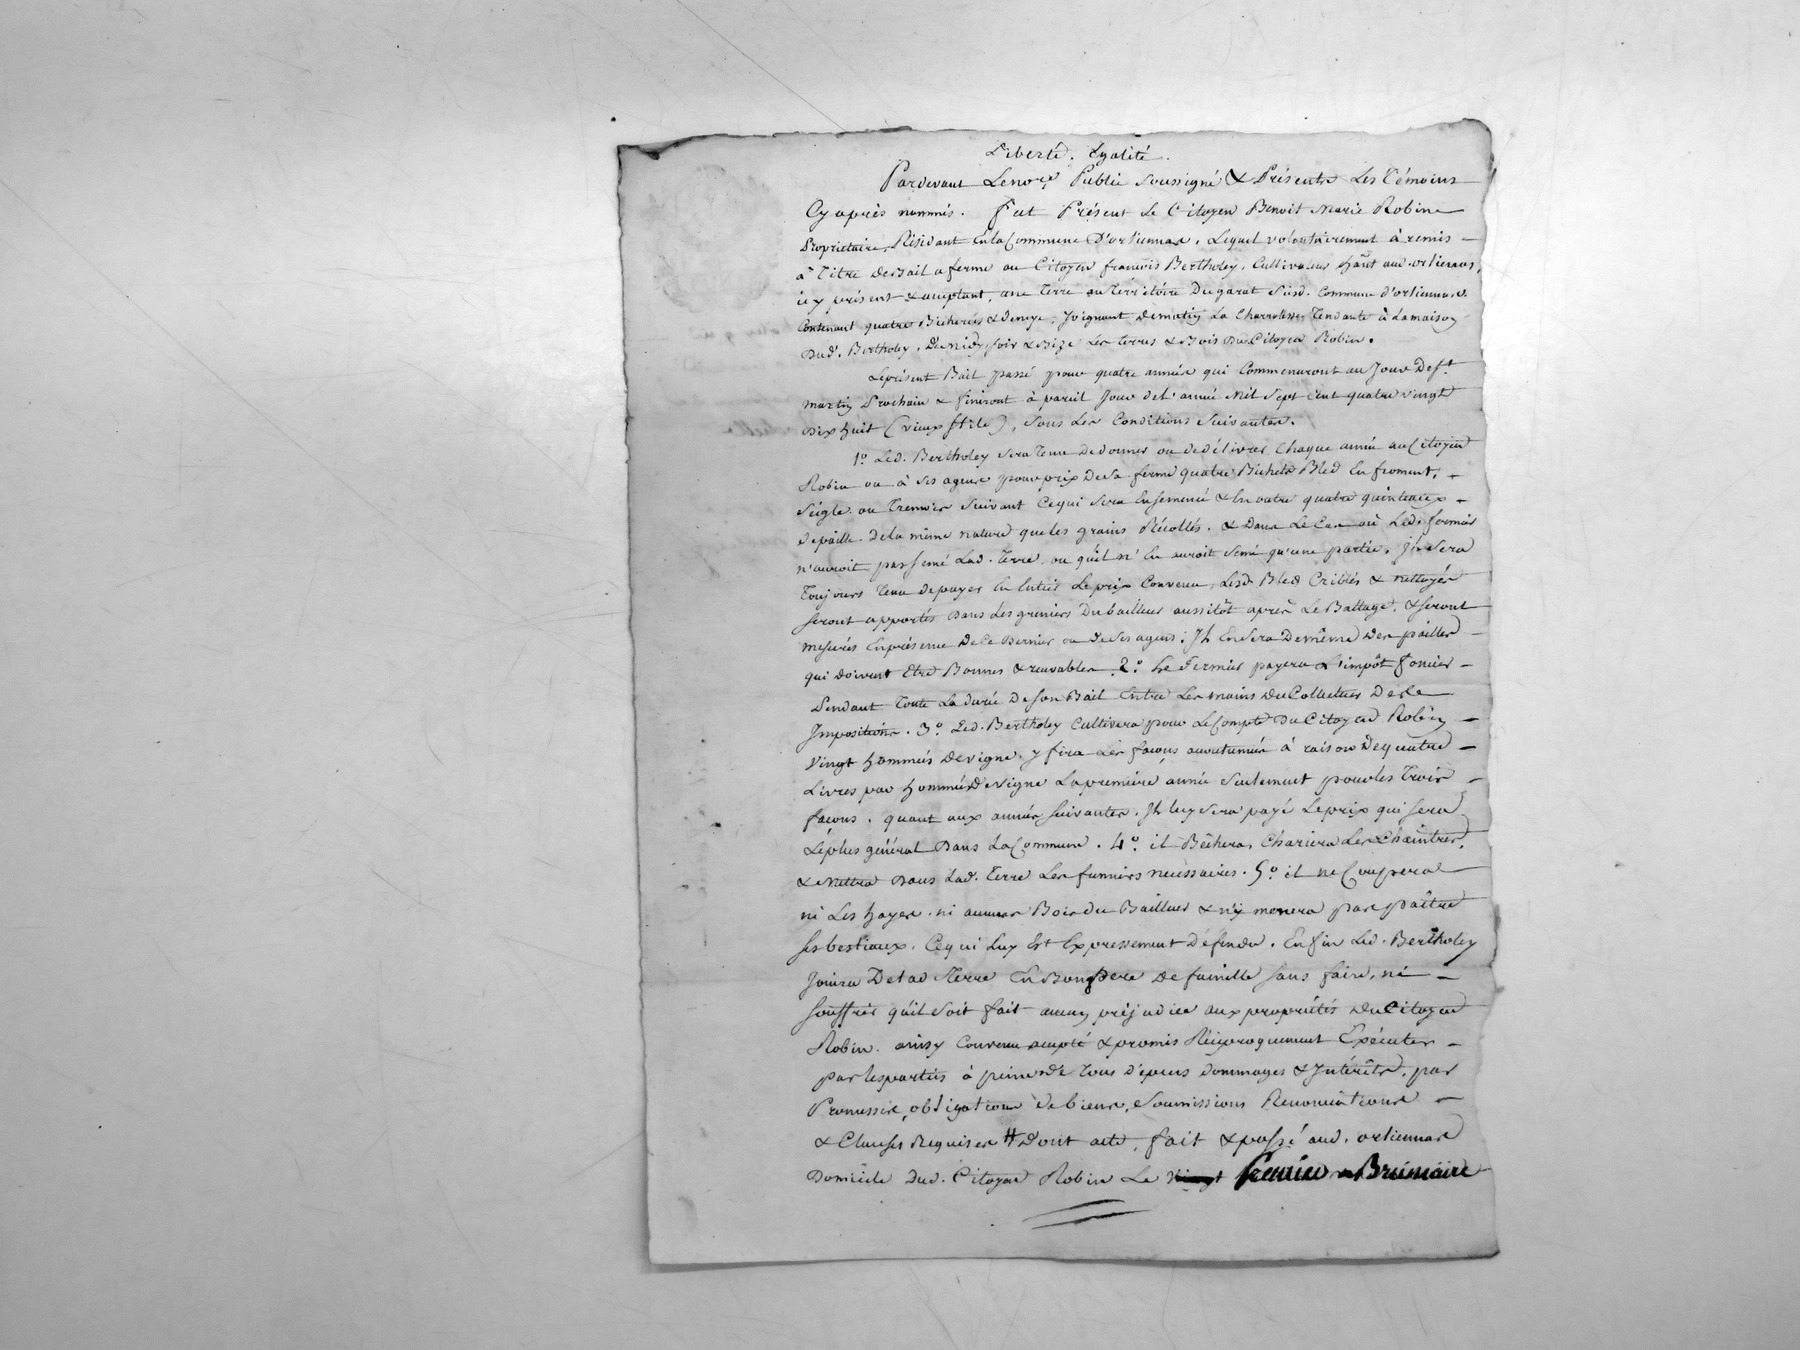 Liberté. Egalité.
Pardevant Le nore. Public soussigné & Présents Les Témoins
Cy après nommés. fut Présent Le Citoyen Benoit Marie Robin
Proprietaire, Résidant en la Commune D'orliennas, Lequel volontairement à remis
à Titre de Bail a ferme au Citoyen françois Bertholey, Cultivateur hant aud. orliennas,
icy présent & acceptant, une Terre au Territoire Du garat susd. Commune d'orliennas.
Contenant quatre Bicherées & demye, Joignant de matin La Charrotesse Tendante à La maison
Dud. Bertholey, De midy soir & Bize Les terres & Bois du Citoyen Robin.
Le présent Bail passé pour quatre années qui Commenceront au Jour De st
martin Prochain & finiront à pareil Jour de L'année Mil Sept Cent quatre vingt
Dix huit (vieux stile), sous Les Conditions suivantes.
1º. Led. Bertholey sera Tenu de donner ou de délivrer Chaque année au Citoyen
Robin ou à ses agens pour prix de sa ferme quatre Bichets Bled En froment,
seigle ou Tremois suivant Ce qui sera Ensemencé & En outre quatre quinteaux
de paille de la même nature que les grains Récoltés. & Dans Le Cas où Led. fermier
n'auroit pas semé Lad. Terre, ou qu'il n'En auroit semé qu'une partie, Jl sera
Toujours Tenu de payer En Entier Le prix Convenu, Lesd. Bled Criblés & nettoyés
seront apportés Dans Les greniers Du bailleur aussitôt après Le Battage, & seront
mesurés En présence De Ce Dernier ou De ses agens; Jl En sera De même Des pailles
qui doivent Etre Bonnes & recevables. 2º. Le Fermier payera L'impôt foncier
Pendant Toute La durée De son Bail Entre Les mains Du Collecteur Des
Impositions. 3º. Led. Bertholey Cultivera pour Le Compte Du Citoyen Robin
Vingt hommées de vigne, y fera Les façons accoutumées à raison De quatre
Livres par hommée De vigne La première année seulement pour les Trois
façons. quant aux années suivantes. Jl luy sera payé Le prix qui sera
Le plus général Dans La Commune. 4º. il Bêchera, Chariera Les Chaintres,
& Mettra Dans Lad. Terre Les fumiers nécessaires. 5º. il ne Coupera
ni Les hayes ni aucuns Bois du Bailleur & n'y menera pas paître
ses bestiaux, Ce qui Luy Est Expressement Défendu. Enfin Led. Bertholey
Jouira De lad Terre En Bon pere de famille sans faire, ni
souffrir qu'il soit fait aucun préjudice aux propriétés Du Citoyen
Robin. ainsy Convenu accepté & promis Réciproquement Exécuter
par les parties à peine de Tous dépens dommages & Jntérêts, par
Promesses, obligations De biens, soumissions Renonciations
& Clauses Requises # Dont acte, fait & passé aud. orliennas
Domicile Dud. Citoyen Robin Le vingt Premier Brumaire